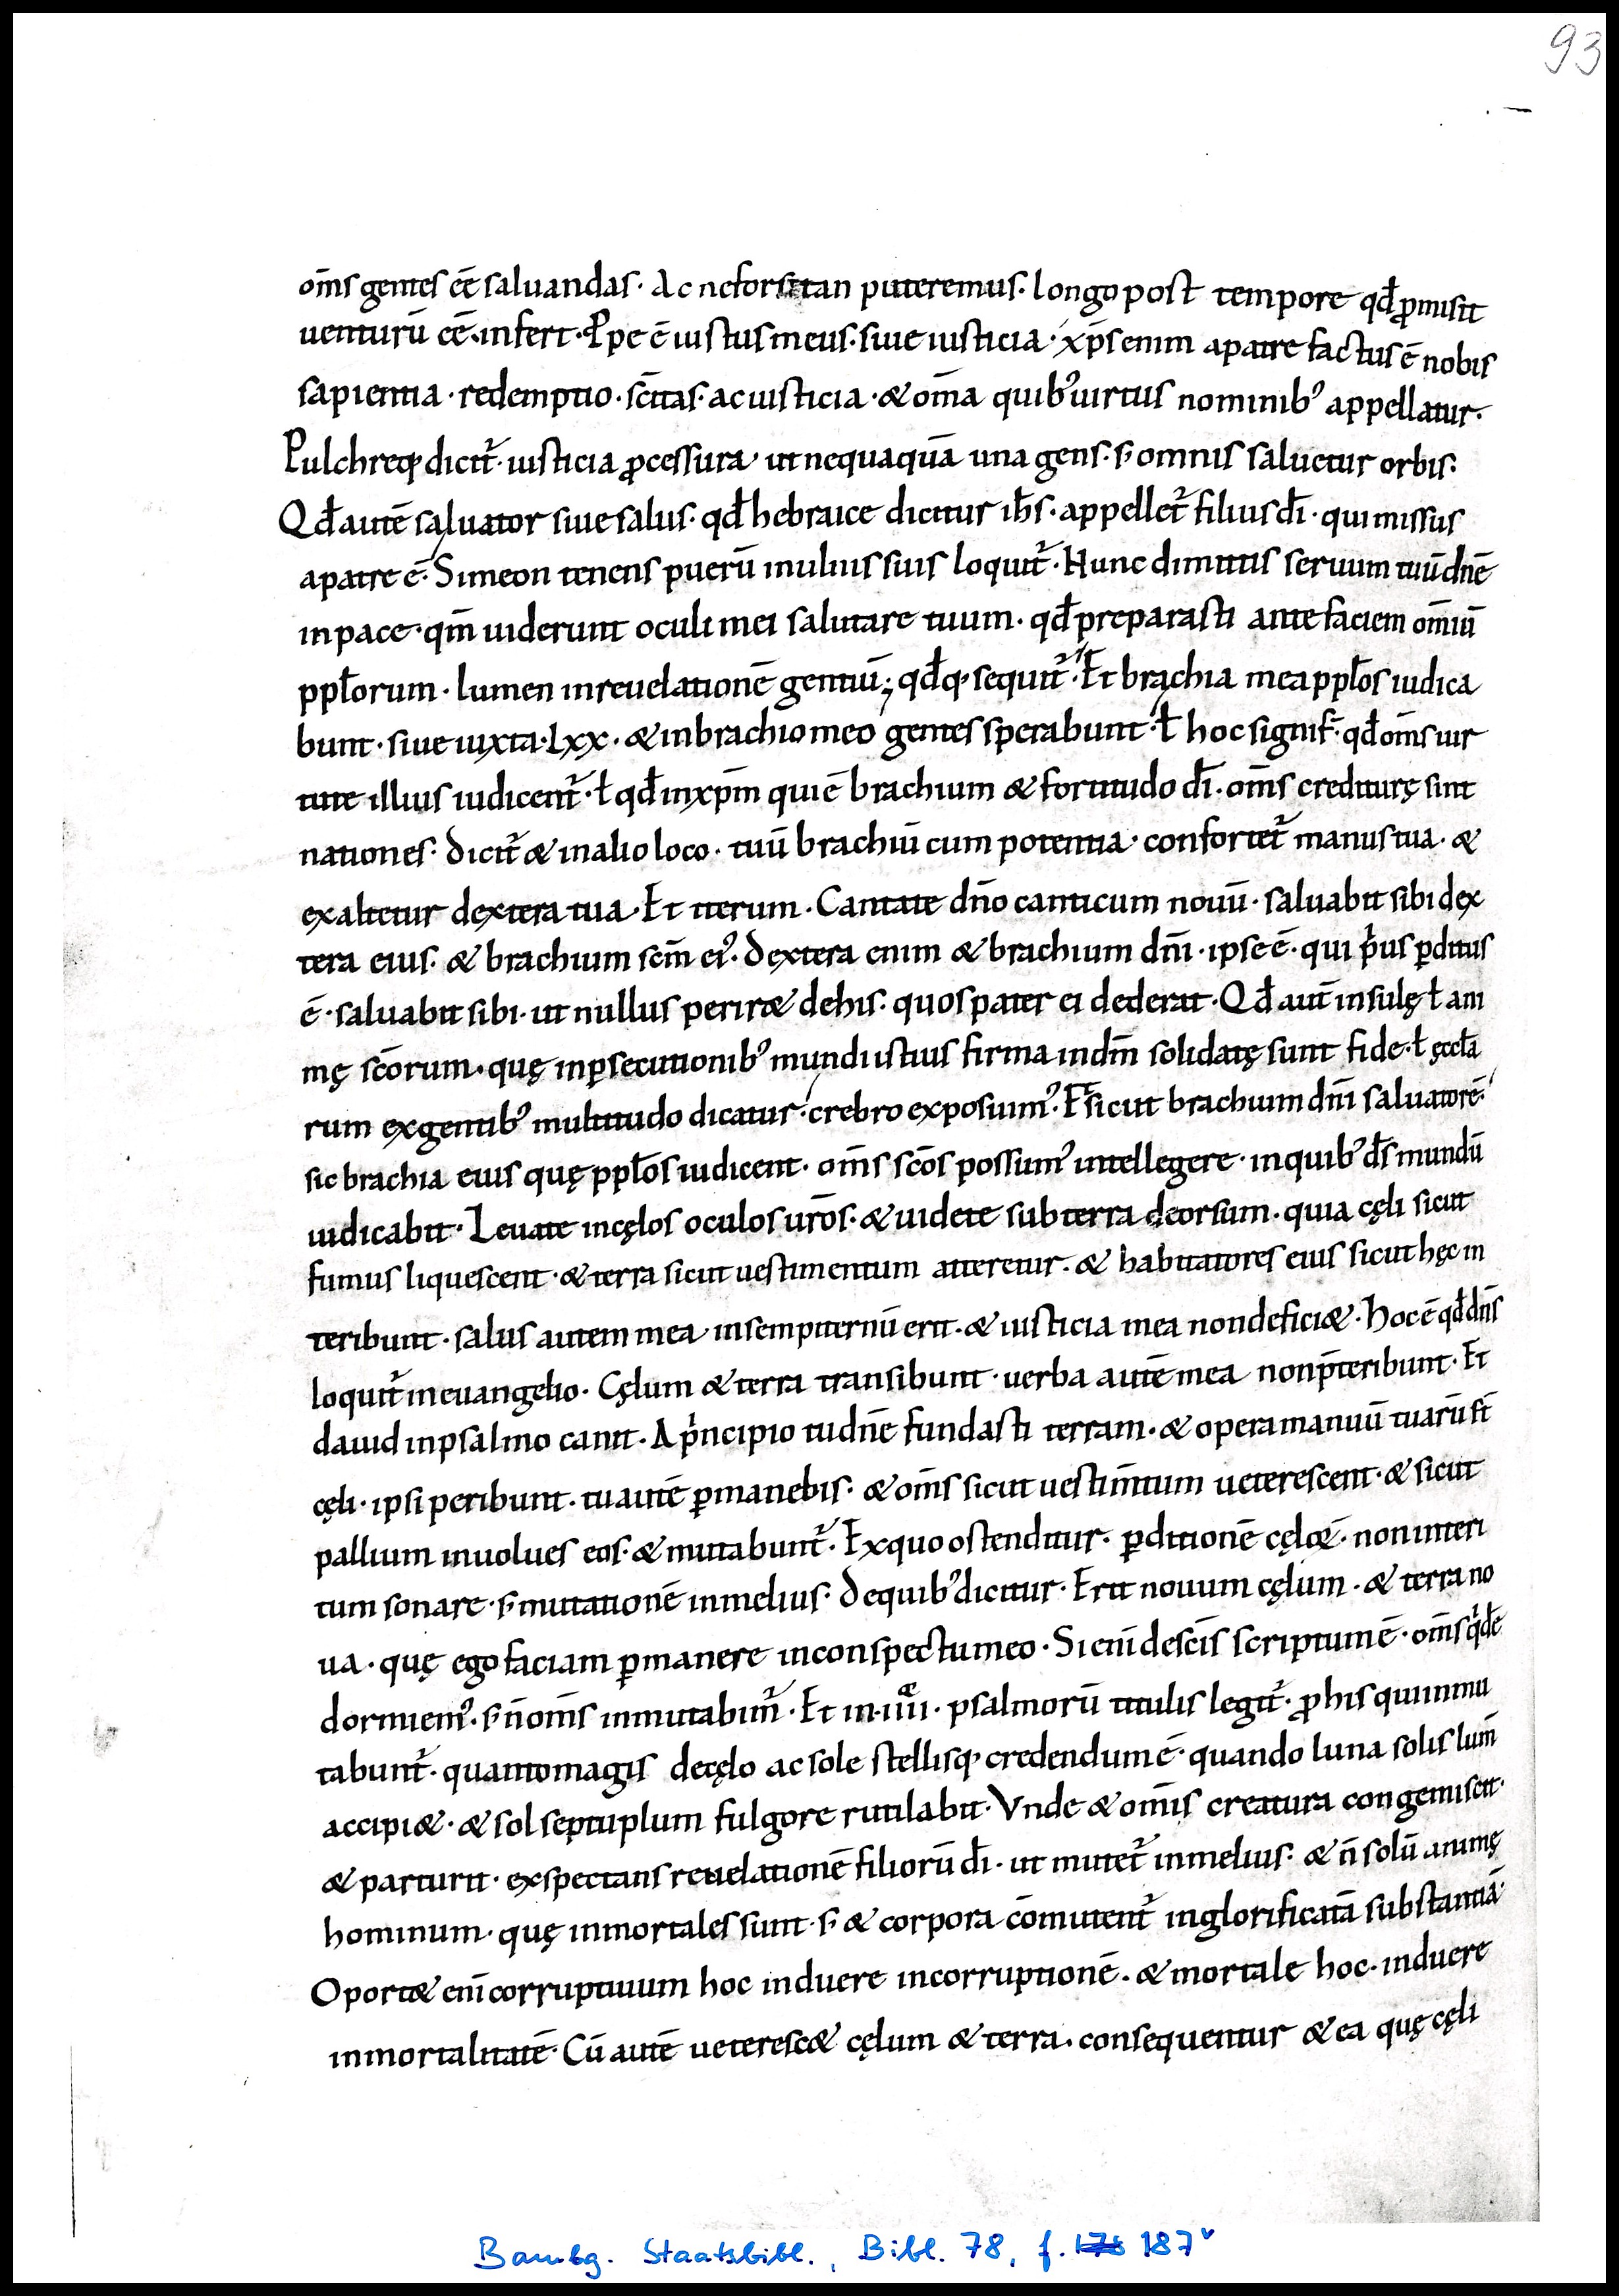 93
om̄s gentes eē saluandas· Ac ne forsitan puteremus· longo post tempore qđ ꝓmisit
uenturū eē· infert· Ppe ē iustus meus· siue iusticia· xp̄s enim apatre factus ē nobis
sapientia· redemptio· sc̄itas· ac iusticia· & om̄a quib᾽ uirtus nominib᾽ appellatur·
Pulchreq· dicit᷑· iusticia ꝓcessura· ut nequaquā una gens· s; omnis saluetur orbis·
Qđ autē saluator siue salus· qđ hebraice dicitur ih̄s· appellet᷑ filius dī· qui missus
apatre ē· Simeon tenens puerū inulnis suis loquit᷑· Nunc dimittis seruum tuū dn̄e
inpace· qm̄ uiderunt oculi mei salutare tuum· qđ preparasti ante faciem om̄iū
ppl̄orum· lumen inreuelationē gentiū; qđq· sequit᷑· Et brachia mea ppl̄os iudica
bunt· siue iuxta· Lxx· & inbrachio meo gentes sperabunt· ł hoc signif̄· qđ om̄s uir
tute illius iudicent᷑· ł qđ inxp̄m qui ē brachium & fortitudo dī· om̄s crediturę sint
nationes· Dicit᷑ & inalio loco· tuū brachiū cum potentia· confortet᷑ manus tua· &
exaltetur dextera tua· Et iterum· Cantate dn̄o canticum nouū· saluabit sibi dex
tera eius· & brachium sc̄m ei᾽· Dextera enim & brachium dn̄i· ipse ē· qui p̓us ꝑditus
ē· saluabit sibi· ut nullus perir& dehis· quos pater ei dederat· Qđ aut̄ insulę ł ani
mę sc̄orum· quę inꝑsecutionib᾽ mundi istius firma indm̄ solidatę sunt fide· ł ęccl̄a
rum exgentib᾽ multitudo dicatur· crebro exposuim᾽· Et sicut brachium dn̄i saluatorē·
sic brachia eius quę ppl̄os iudicent· om̄s sc̄os possum᾽ intellegere· inquib᾽ dš mundū
iudicabit· Leuate incęlos oculos ur̄os· & uidete sub terra deorsum· quia cęli sicut
fumus liquescent· & terra sicut uestimentum atteretur· & habitatores eius sicut hęc in
teribunt· salus autem mea insempiternū erit· & iusticia mea nondefici&· Hoc ē qđ dn̄s
loquit᷑ in euangelio· Cęlum & terra transibunt· uerba autē mea nonp̄teribunt· Et
dauid inpsalmo canit· A p̓ncipio tu dn̄e fundasti terram· & opera manuū tuarū st̄
cęli· ipsi peribunt· tu autē ꝑmanebis· & om̄s sicut uestim̄tum ueterescent· & sicut
pallium inuolues eos· & mutabunt᷑· Exquo ostenditur· ꝑditionē cęloꝝ· non interi
tum sonare· s; mutationē inmelius· Dequib᾽ dicitur· Erit nouum cęlum· & terra no
ua· quę ego faciam ꝑmanere inconspectu meo· Sicut desc̄is scriptum ē· om̄s qͥdē
dormiem᾽· s; n̄ om̄s inmutabim᷑· Et in· iiii· psalmorū titulis legit᷑· ꝓ his qui inmu
tabunt᷑· quanto magis decęlo ac sole stellisq· credendum ē· quando luna solis lum̄
accipi&· & sol septuplum fulgore rutilabit· Vnde & om̄is creatura congemiscit·
& parturit· exspectans reuelationē filiorū dī· ut mutet᷑ inmelius· & n̄ solū animę
hominum· quę inmortales sunt· s; & corpora cōmutent᷑ inglorificatā substantiā·
Oport& eni corruptiuum hoc induere incorruptionē· & mortale hoc· induere
inmortalitatē· Cū autē ueteresc& cęlum & terra· consequentur & ea quę cęli
Bambg. Staatsbibl., Bibl. 78, f. 187ᵛ